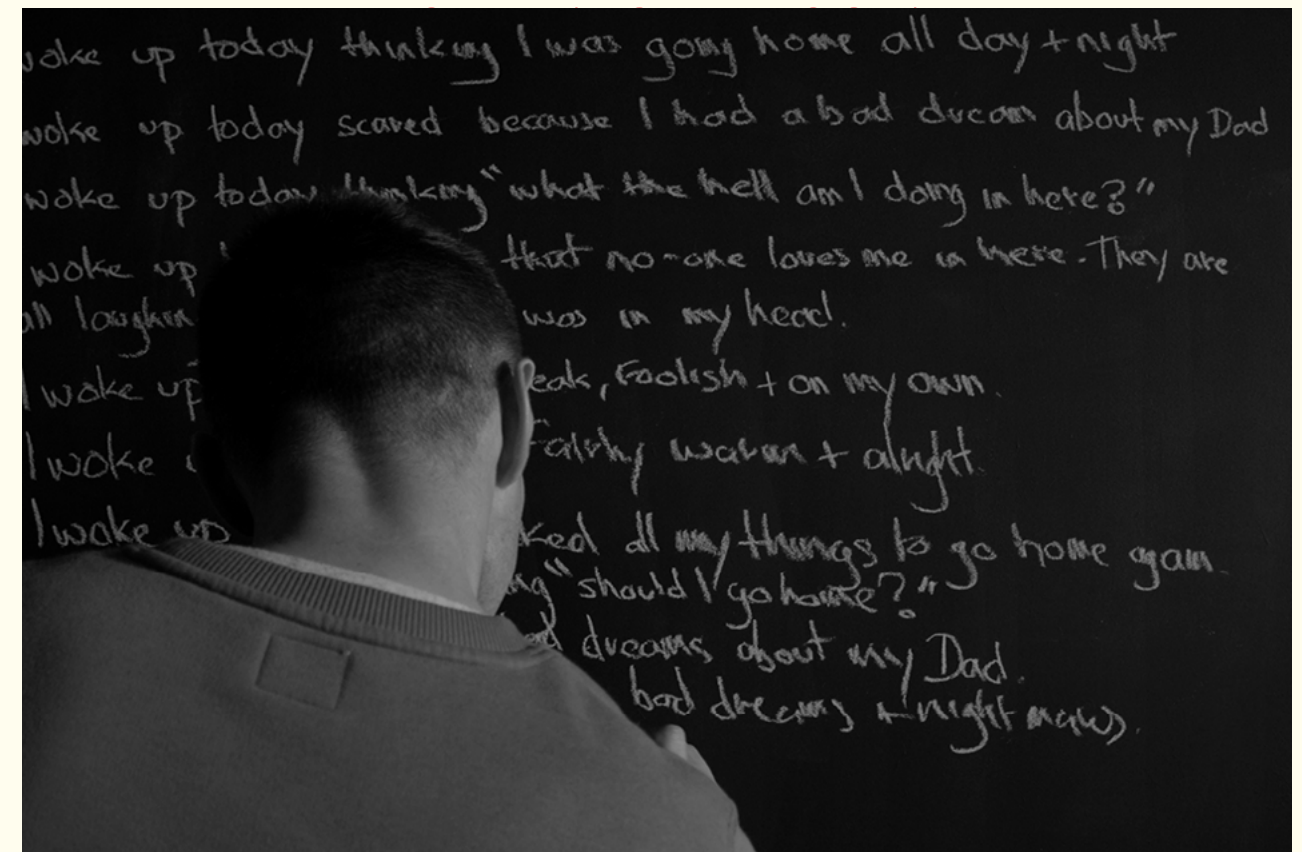 woke up today thinking I was going home all day + night
woke up today scared because I had a bad dream about my Dad
woke up today thinking "what the hell am I doing in here?"
woke up that no-one loves me in here. They are
all laughin was in my head.
I woke up eak, foolish + on my own.
I woke fairly warm + alright.
I woke up ked all my things to go home again.
ng "should I go home?"
ad dreams about my Dad.
bad dreams + nightmares.